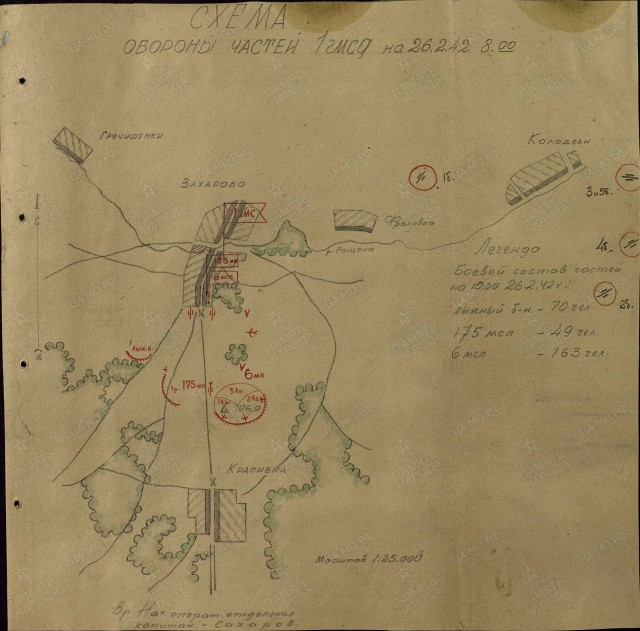 СХЕМА
ОБОРОНЫ ЧАСТЕЙ 1 гМСД на 26.2.42 8.00
Гречишенки
Колодези
ЗАХАРОВО
1б.
3 и 5б.
1 гМС
р. Ращена
Легенда
4б.
Боевой состав частей
на 10.00 26.2.42 г.:
2б.
лыжный б-н - 70 чел
175 мсп - 49 чел
6 мсп - 163 чел.
лыж.б.
6мп
1р.
175мп
3б.
КРАПИВКА
Масштаб 1:25.000
Вр. Нач. операт. отделения
капитан - Сахаров.